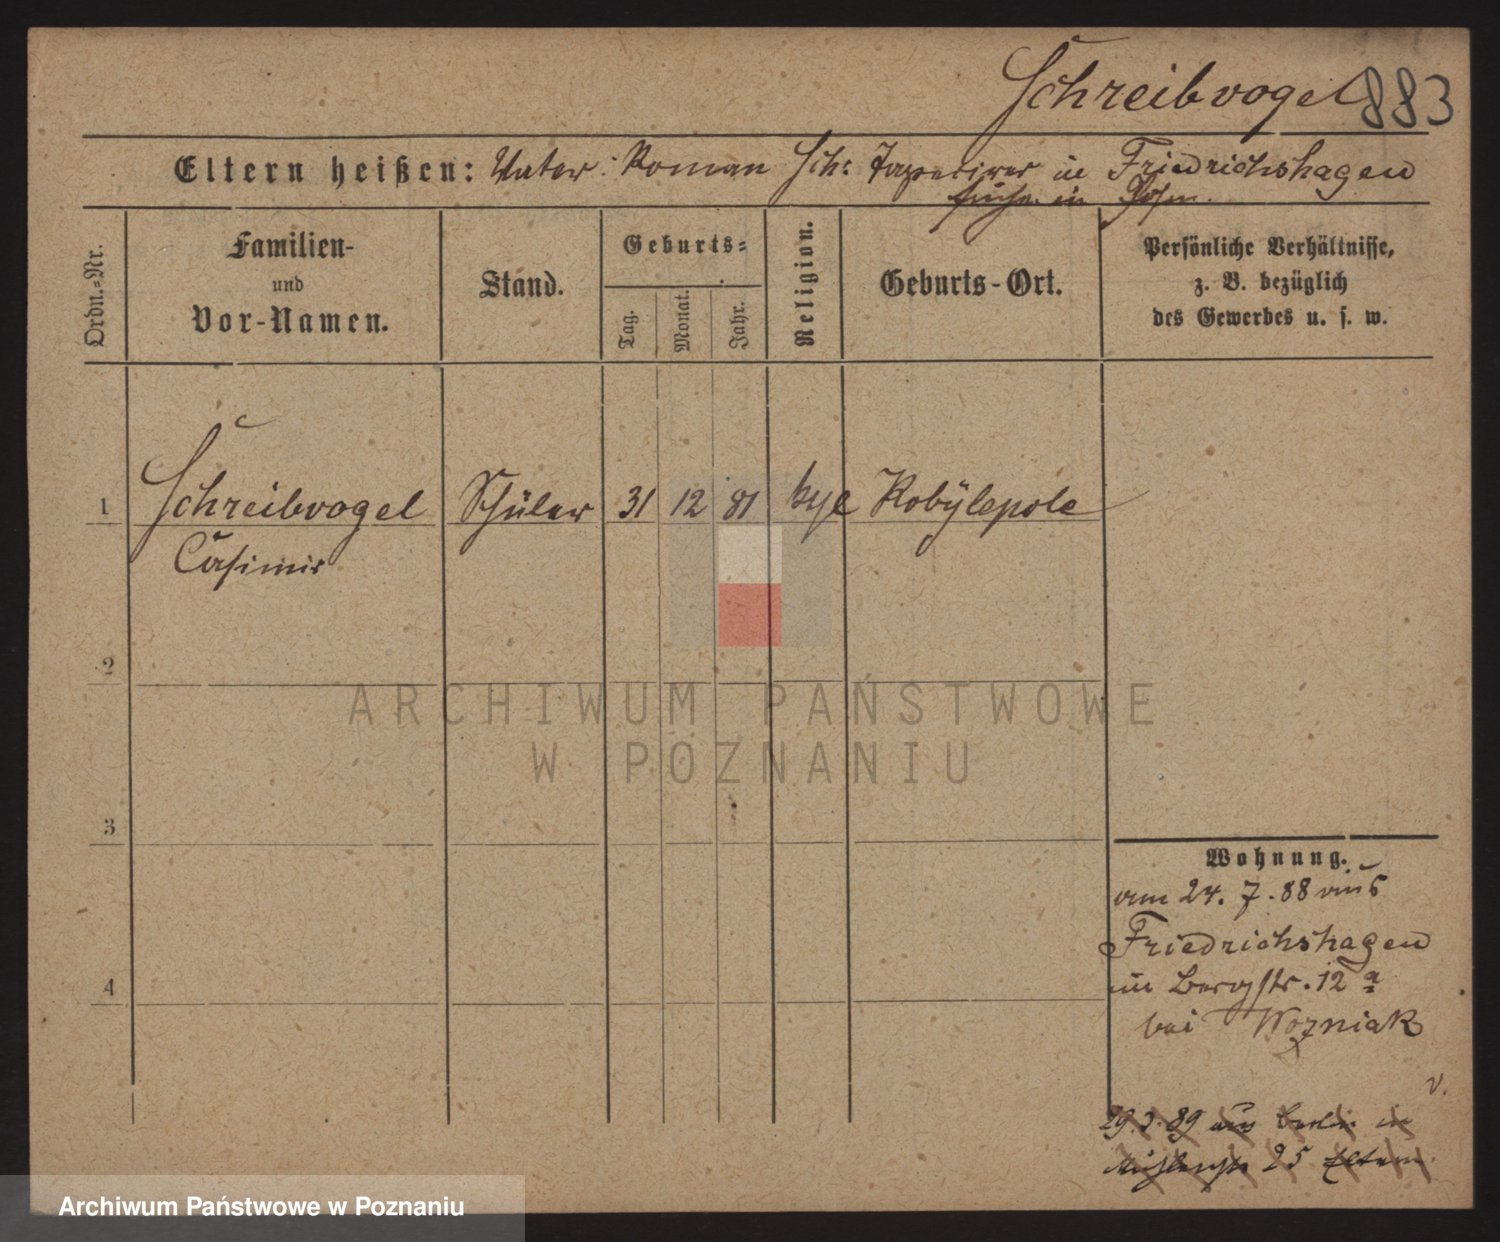 Schreibvogel 883
Eltern heißen: Vater: Roman Sch: Tapezirer in Friedrichshagen
früher in Posen.
Ordn.-Nr.
Familien-
und
Vor-Namen.
Stand.
Geburts-
Tag.
Monat.
Jahr.
Religion.
Geburts-Ort.
Persönliche Verhältnisse,
z. B. bezüglich
des Gewerbes u. s. w.
1 Schreibvogel Schüler 31 12 81 Kobylepole
Casimir
2
3
4
Wohnung.
am 24. 7. 88 aus
Friedrichshagen
in Bergstr. 12 a
bei Wozniak
v.
29. 3. 89 aus Berlin in
25 Eltern.
ARCHIWUM PAŃSTWOWE
W POZNANIU
Archiwum Państwowe w Poznaniu